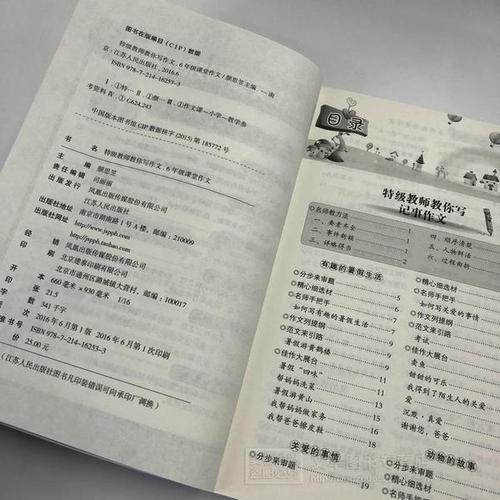 图书在版编目(CIP)数据
特级教师教你写作文.6年级课堂作文/颜思笠主编.—南
京:江苏人民出版社,2016.6
ISBN 978-7-214-16253-3
Ⅰ.①特… Ⅱ.①颜… Ⅲ.①作文课—小学—教学参
考资料 Ⅳ.①G624.243
中国版本图书馆CIP数据核字(2015)第185772号
书 名 特级教师教你写作文.6年级课堂作文
主 编
责任编辑
出版发行 凤凰出版传媒股份有限公司
江苏人民出版社
出版社地址 南京市湖南路1号A楼,邮编:210009
出版社网址 http://www.jspph.com
http://jspph.taobao.com
经 销 凤凰出版传媒股份有限公司
印 刷 北京建泰印刷有限公司
北京市通州区潞城镇大营村,邮编:100017
开 本 660毫米×930毫米 1/16
印 张 21.5
字 数 341千字
版 次 2016年6月第1版 2016年6月第1次印刷
标准书号 ISBN 978-7-214-16253-3
定 价 25.00元
(江苏人民出版社图书凡印装错误可向承印厂调换)
目录
特级教师教你写
记事作文
名师教方法
一、要素齐全
二、事件新颖
三、详略得当
四、顺序清楚
五、人物鲜活
六、过程曲折
有趣的暑假生活
分步来审题
精心细选材 5
名师手把手 6
如何写有趣的暑假生活 7
作文列提纲 7
范文来引路 8
佳作大展台 9
暑假游黄鹤楼
暑假“四味”
帮妈妈洗菜
暑假游黄山
我帮妈妈做家务
我帮爸爸擦皮鞋
关爱的事情
分步来审题 19
精心细选材
名师手把手
如何写关爱的事情
作文列提纲
范文来引路
考试
佳作大展台
卖鱼
甜甜的可乐
我得到了陌生人的关爱
爱
沉默·真爱
谢谢您,爸爸
动物的故事
分步来审题
精心细选材
名师手把手